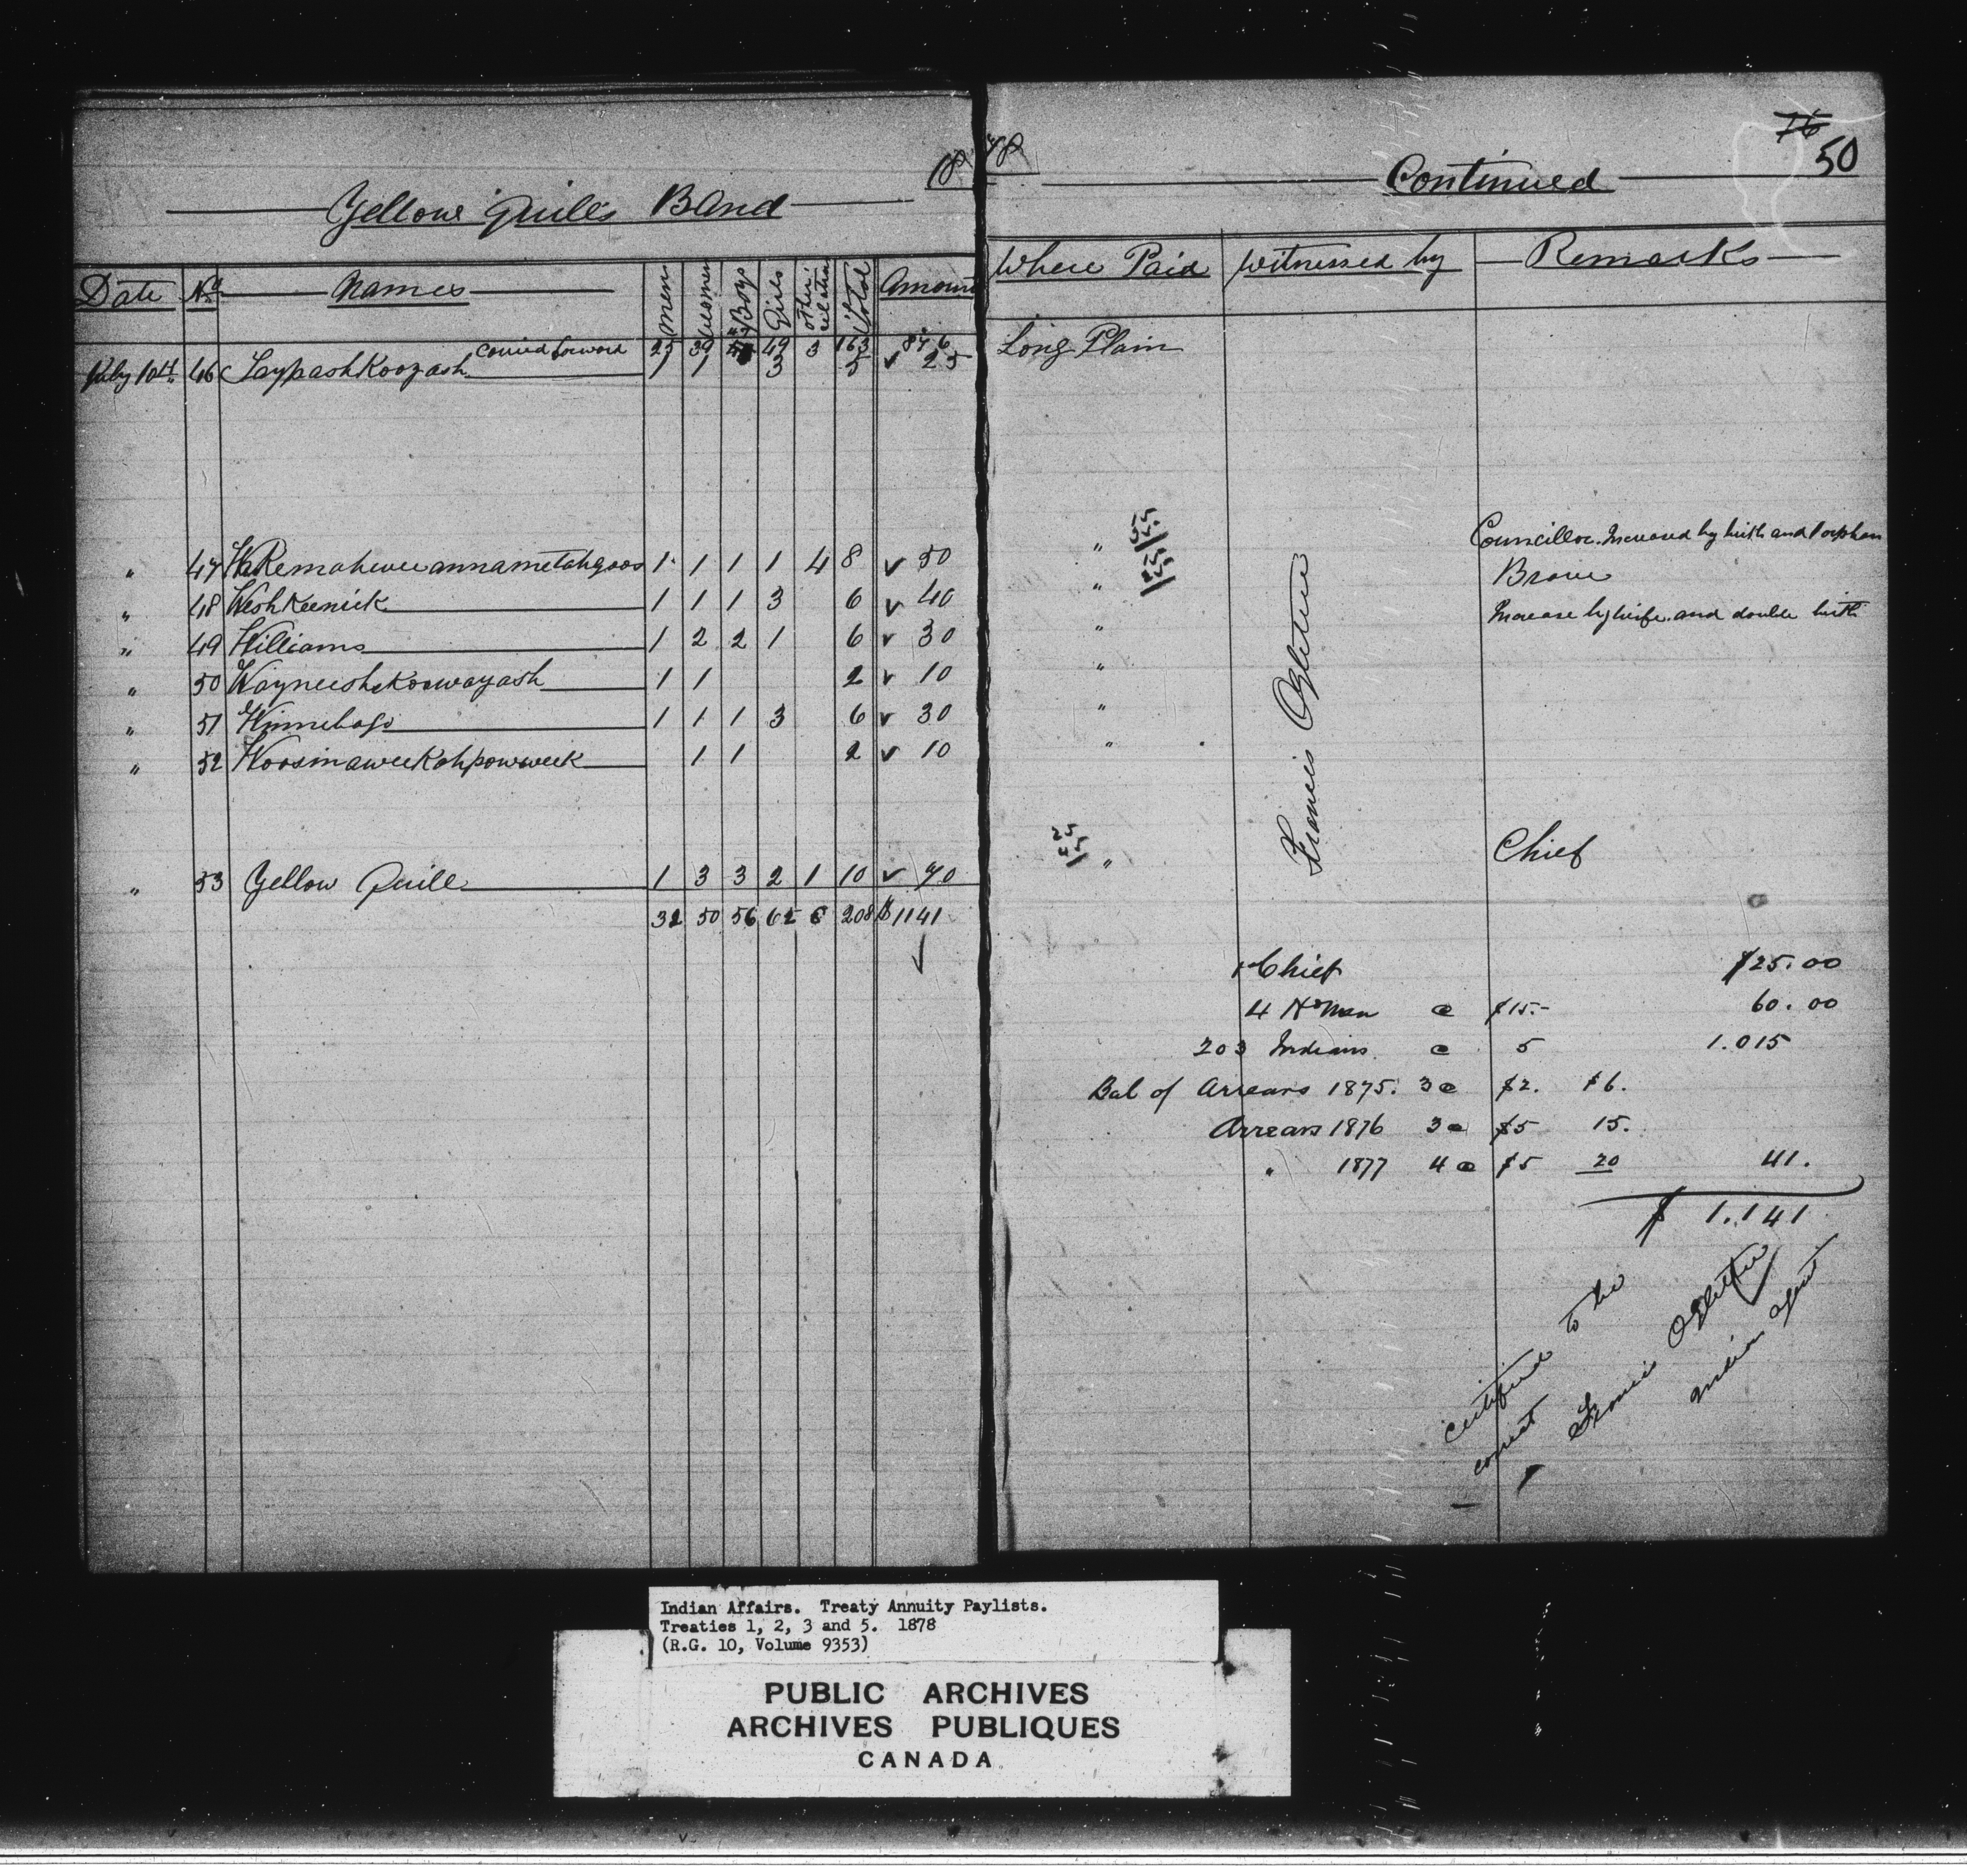 18
Yellow Quill's Band
Date No Names Men Women Boys Girls other relation Total Amount
carried forward 25 39 47 49 3 163 876
July 10th 46 Taypashkoozash 1 1 3 5 ✓ 25
" 47 1 1 1 1 4 8 ✓ 50
" 48 Weshkeenick 1 1 1 3 6 ✓ 40
" 49 Williams 1 2 2 1 6 ✓ 30
" 50 1 1 2 ✓ 10
" 51 Winnebago 1 1 1 3 6 ✓ 30
" 52 Woosinaweekahpowweek 1 1 2 ✓ 10
" 53 Yellow Quill 1 3 3 2 1 10 ✓ 70
32 50 56 62 8 208 $1141
✓
78
76
50
Continued
Where Paid Witnessed by Remarks
Long Plain
" Councillor. Increased by birth and 1 orphan
" Brave
" Increase by wife and double birth
"
"
"
Francis Ogletree
25
45
" Chief
1 Chief $25.00
4 Hdmen @ $15.- 60.00
203 Indians @ 5 1.015
Bal of Arrears 1875. 3 @ $2. $6.
Arrears 1876 3 @ $5 15.
" 1877 4 @ $5 20 41.
$ 1.141
certified to be
correct
Francis Ogletree
Indian Agent
Indian Affairs. Treaty Annuity Paylists.
Treaties 1, 2, 3 and 5. 1878
(R.G. 10, Volume 9353)
PUBLIC ARCHIVES
ARCHIVES PUBLIQUES
CANADA